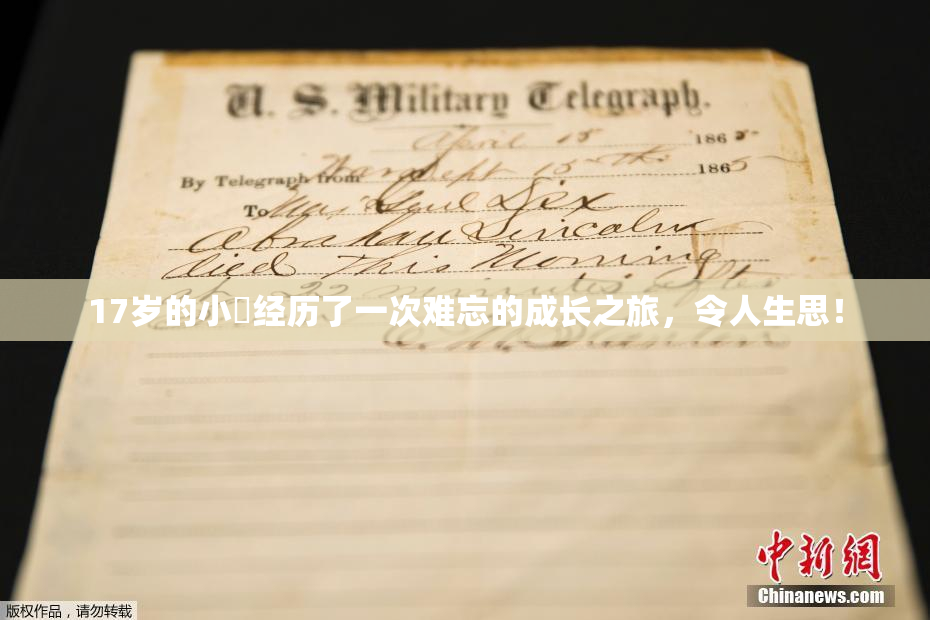 U. S. Military Telegraph.
April 15 1865
By Telegraph from War Dept 15th 1865
To Maj Genl Dix
Abraham Lincoln
died This Morning
at 22 minutes after
17岁的小经历了一次难忘的成长之旅，令人生思！
E. M. Stanton
中新网
Chinanews.com
版权作品，请勿转载